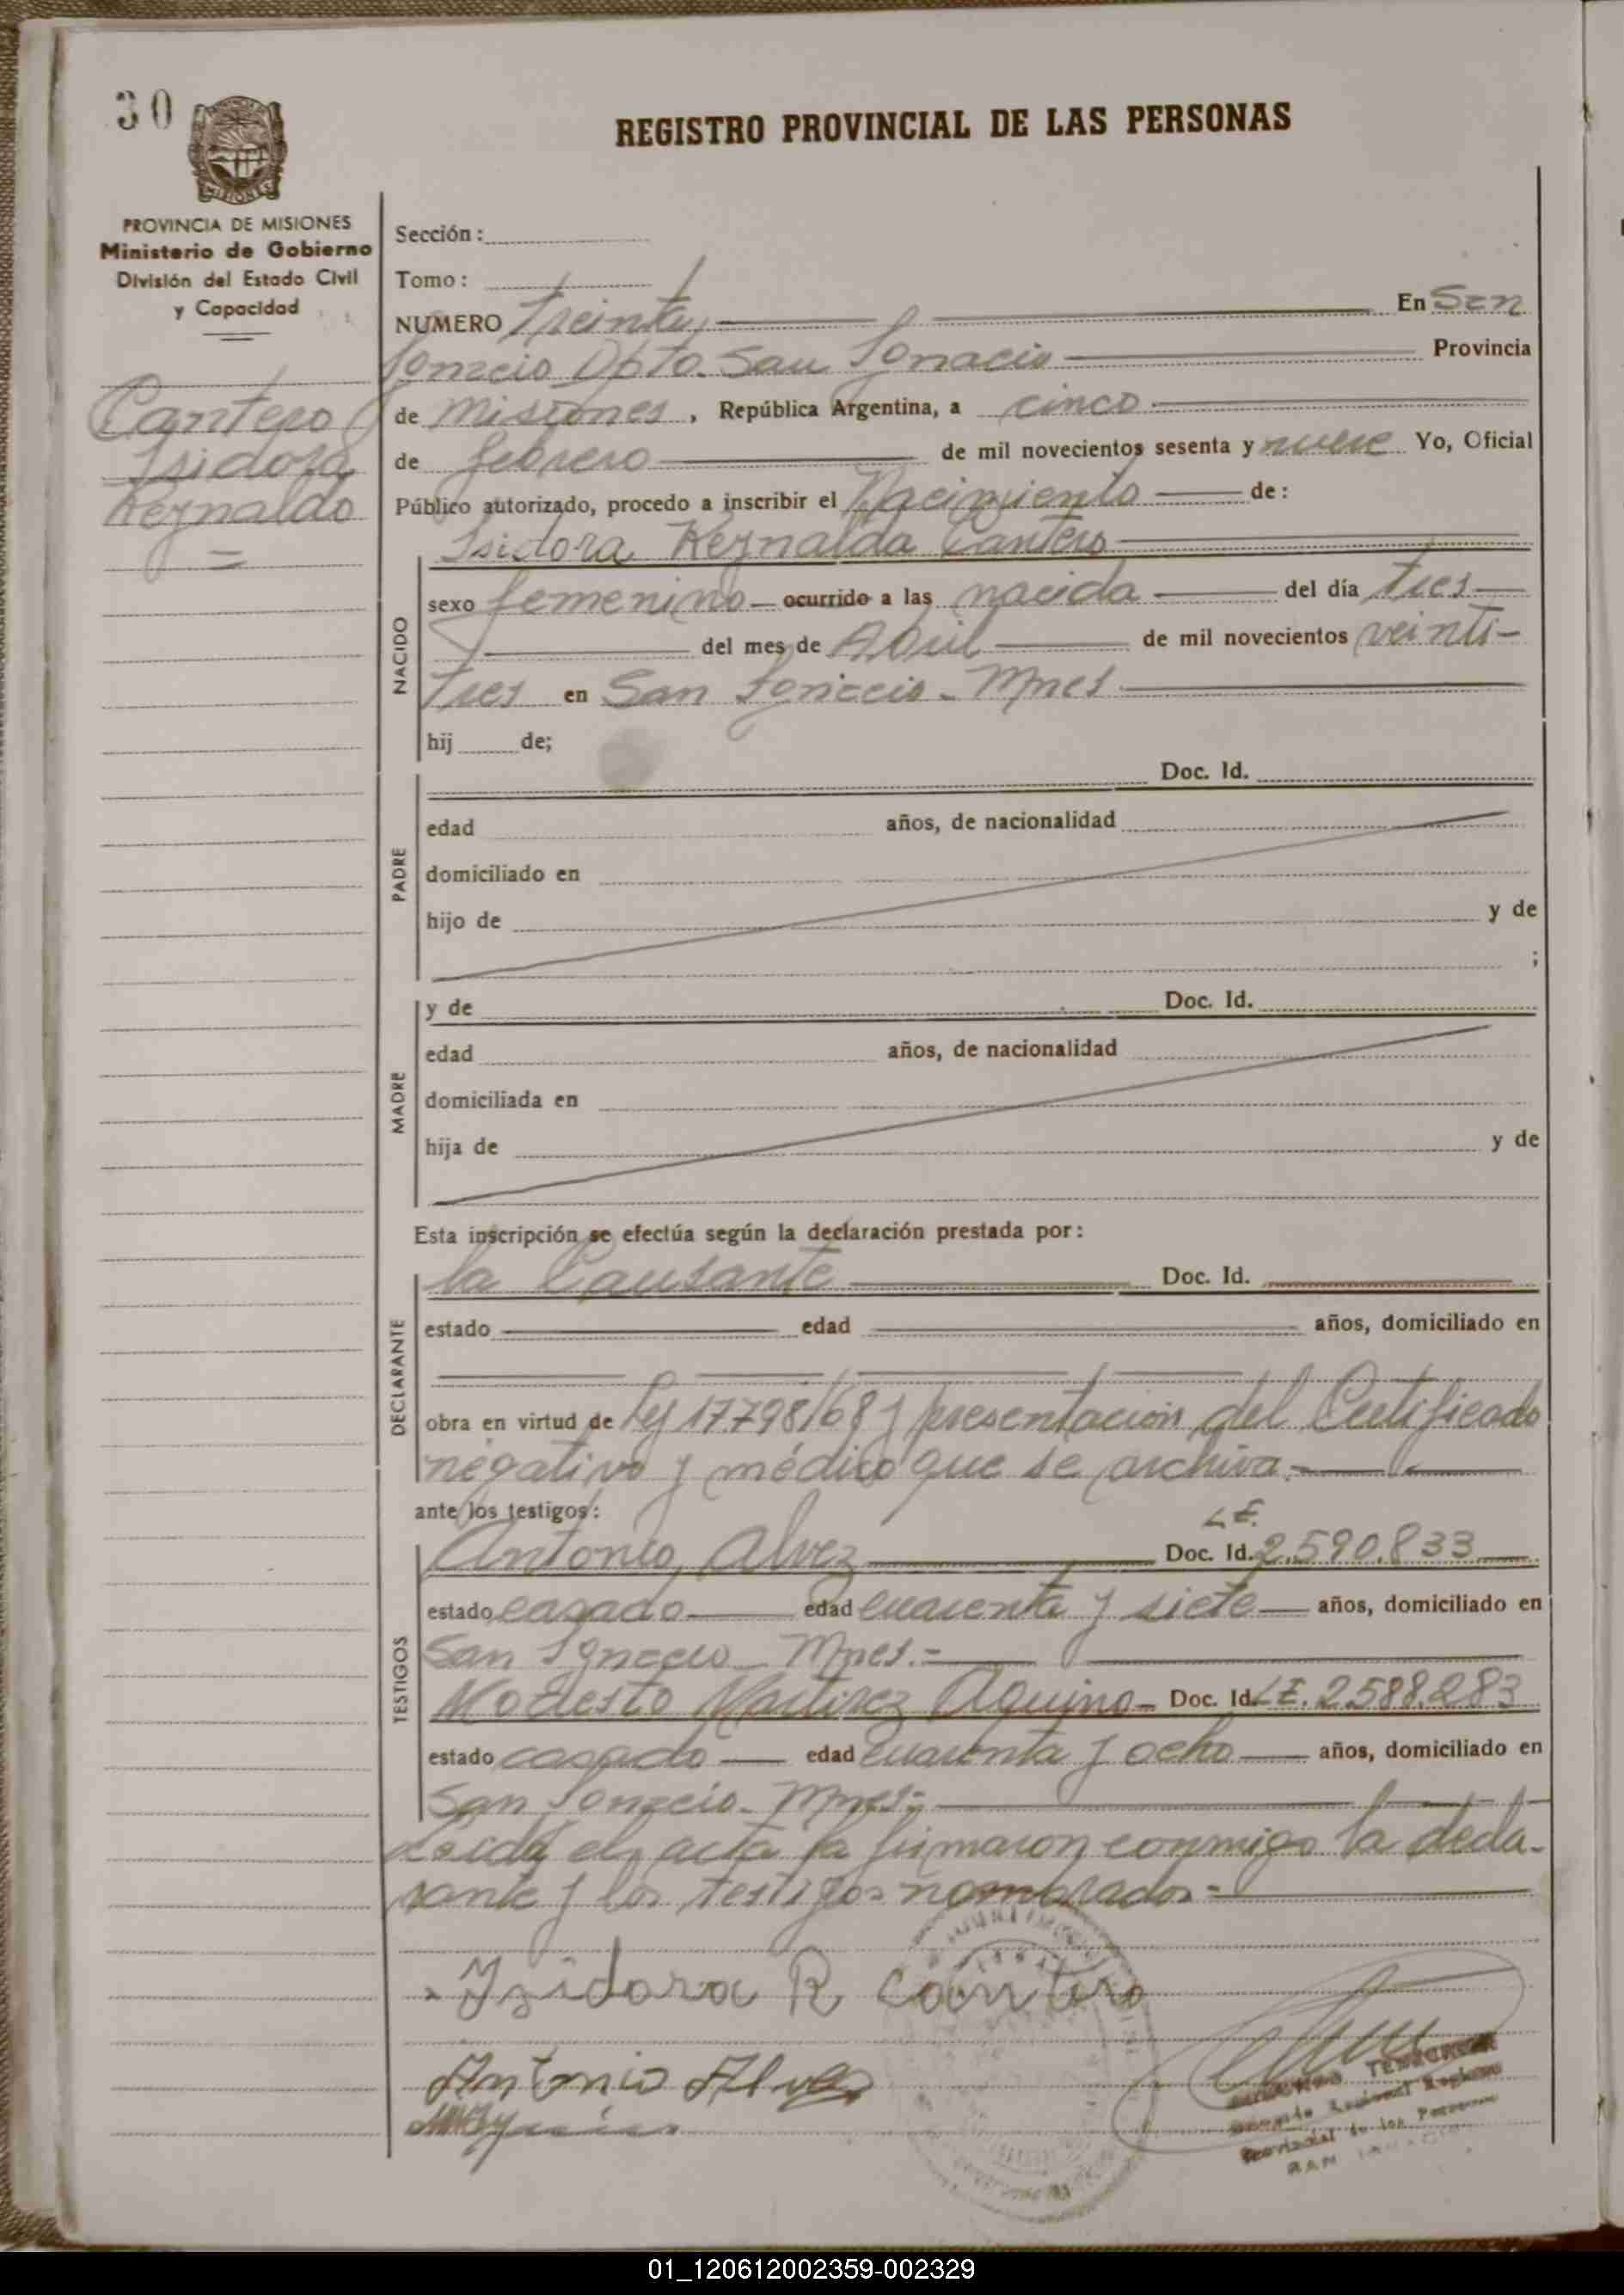 30
REGISTRO PROVINCIAL DE LAS PERSONAS
MISIONES
PROVINCIA DE MISIONES
Ministerio de Gobierno
División del Estado Civil
y Capacidad
Cantero
Isidora
Reynaldo
Sección:
Tomo:
NUMERO Treinta En San
Ignacio Dpto. San Ignacio Provincia
de Misiones, República Argentina, a cinco
de febrero de mil novecientos sesenta y nueve Yo, Oficial
Público autorizado, procedo a inscribir el Nacimiento de:
Isidora Reynalda Cantero
NACIDO
sexo femenino ocurrido a las nacida del día tres
del mes de Abril de mil novecientos veinti-
tres en San Ignacio - Mnes.
hij de;
PADRE
Doc. Id.
edad años, de nacionalidad
domiciliado en
hijo de y de
;
MADRE
y de Doc. Id.
edad años, de nacionalidad
domiciliada en
hija de y de
Esta inscripción se efectúa según la declaración prestada por:
DECLARANTE
la Causante Doc. Id.
estado edad años, domiciliado en
obra en virtud de Ley 17.798/68 y presentación del Certificado
negativo y médico que se archiva.-
ante los testigos:
TESTIGOS
L.E.
Antonio Alvez Doc. Id. 2.590.833
estado casado edad cuarenta y siete años, domiciliado en
San Ignacio - Mnes.-
Modesto Martinez Aquino - Doc. Id. L.E. 2.588.283
estado casado edad cuarenta y ocho años, domiciliado en
San Ignacio - Mnes.-
Leida el acta la firmaron conmigo la decla-
rante y los testigos nombrados.-
Isidora R Cantero
Antonio Alvez
Provincial de las Personas
SAN
01_120612002359-002329